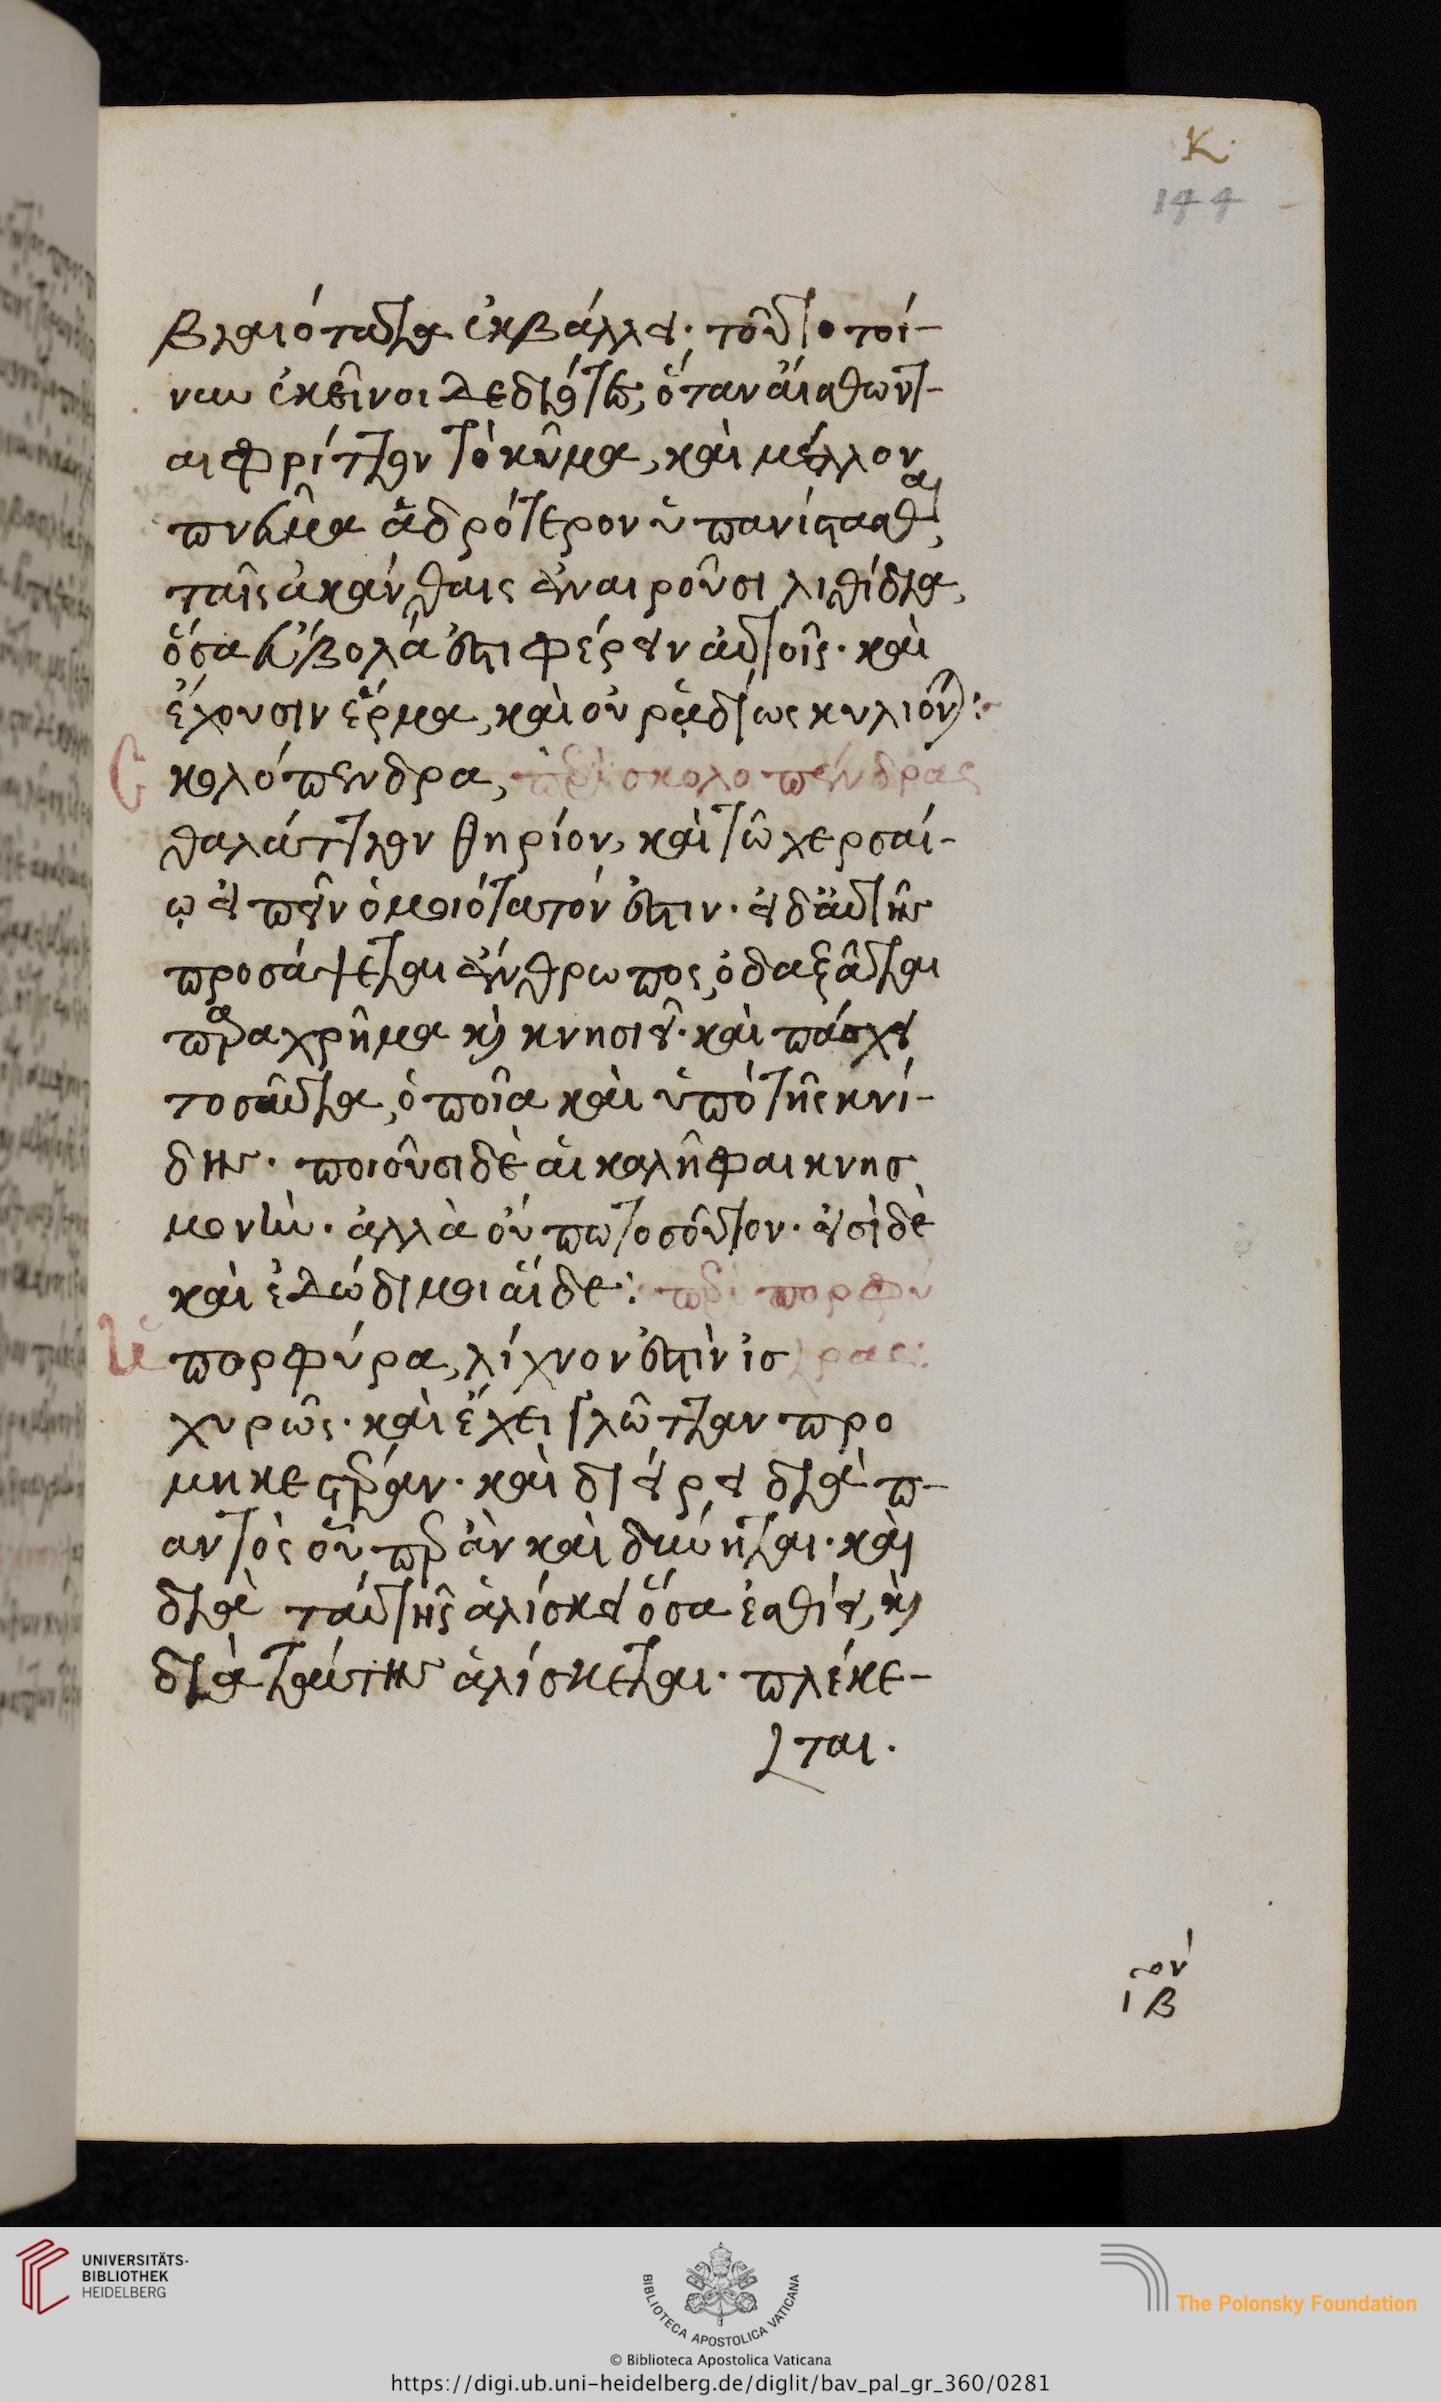 K.
144
βιαιότατα ἐκβάλλει· τοῦτο τοί-
νυν ἐκεῖνοι δεδιότες, ὅταν αἴσθωντ-
αι φρίττον τὸ κῦμα, καὶ μέλλον
πνεῦμα ἁδρότερον ὑπανίστασθαι,
ταῖς ἀκάνθαις ἀναιροῦσι λιθίδια,
ὅσα εὔβολά ἐστι φέρειν αὐτοῖς· καὶ
ἔχουσιν ἕρμα, καὶ οὐ ῥᾳδίως κυλιοῦν):
Σ κολόπενδρα, περὶ σκολοπένδρας
θαλάττιον θηρίον, καὶ τῶ χερσαί-
ῳ εἰπεῖν ὁμοιότατόν ἐστιν· εἰ δ' αὐτῆς
προσάψεται ἄνθρωπος, ὀδαξᾶται
παραχρῆμα κỳ κνησιᾷ· καὶ πάσχει
τοσαῦτα, ὁποῖα καὶ ὑπὸ τῆς κνί-
δης· ποιοῦσι δὲ αἱ καλῆφαι κνησ
μονὴν· ἀλλὰ οὔπω τοσοῦτον· εἰσὶ δὲ
καὶ ἐδώδιμοι αἵδε: περὶ πορφύ
πορφύρα, λίχνον ἐστὶν ἰσ ρας:
χυρῶς· καὶ ἔχει γλῶτταν προ
μηκεστέραν· καὶ διείρει διὰ π-
αντὸς οὗπερ ἂν καὶ δύνηται· καὶ
διὰ ταύτης ἁλίσκει ὅσα ἐσθίει, κỳ
διὰ ταύτης ἁλίσκεται· πλέκε-
ται.
ον
ιβ
UNIVERSITÄTS-
BIBLIOTHEK
HEIDELBERG
BIBLIOTECA APOSTOLICA VATICANA
The Polonsky Foundation
© Biblioteca Apostolica Vaticana
https://digi.ub.uni-heidelberg.de/diglit/bav_pal_gr_360/0281